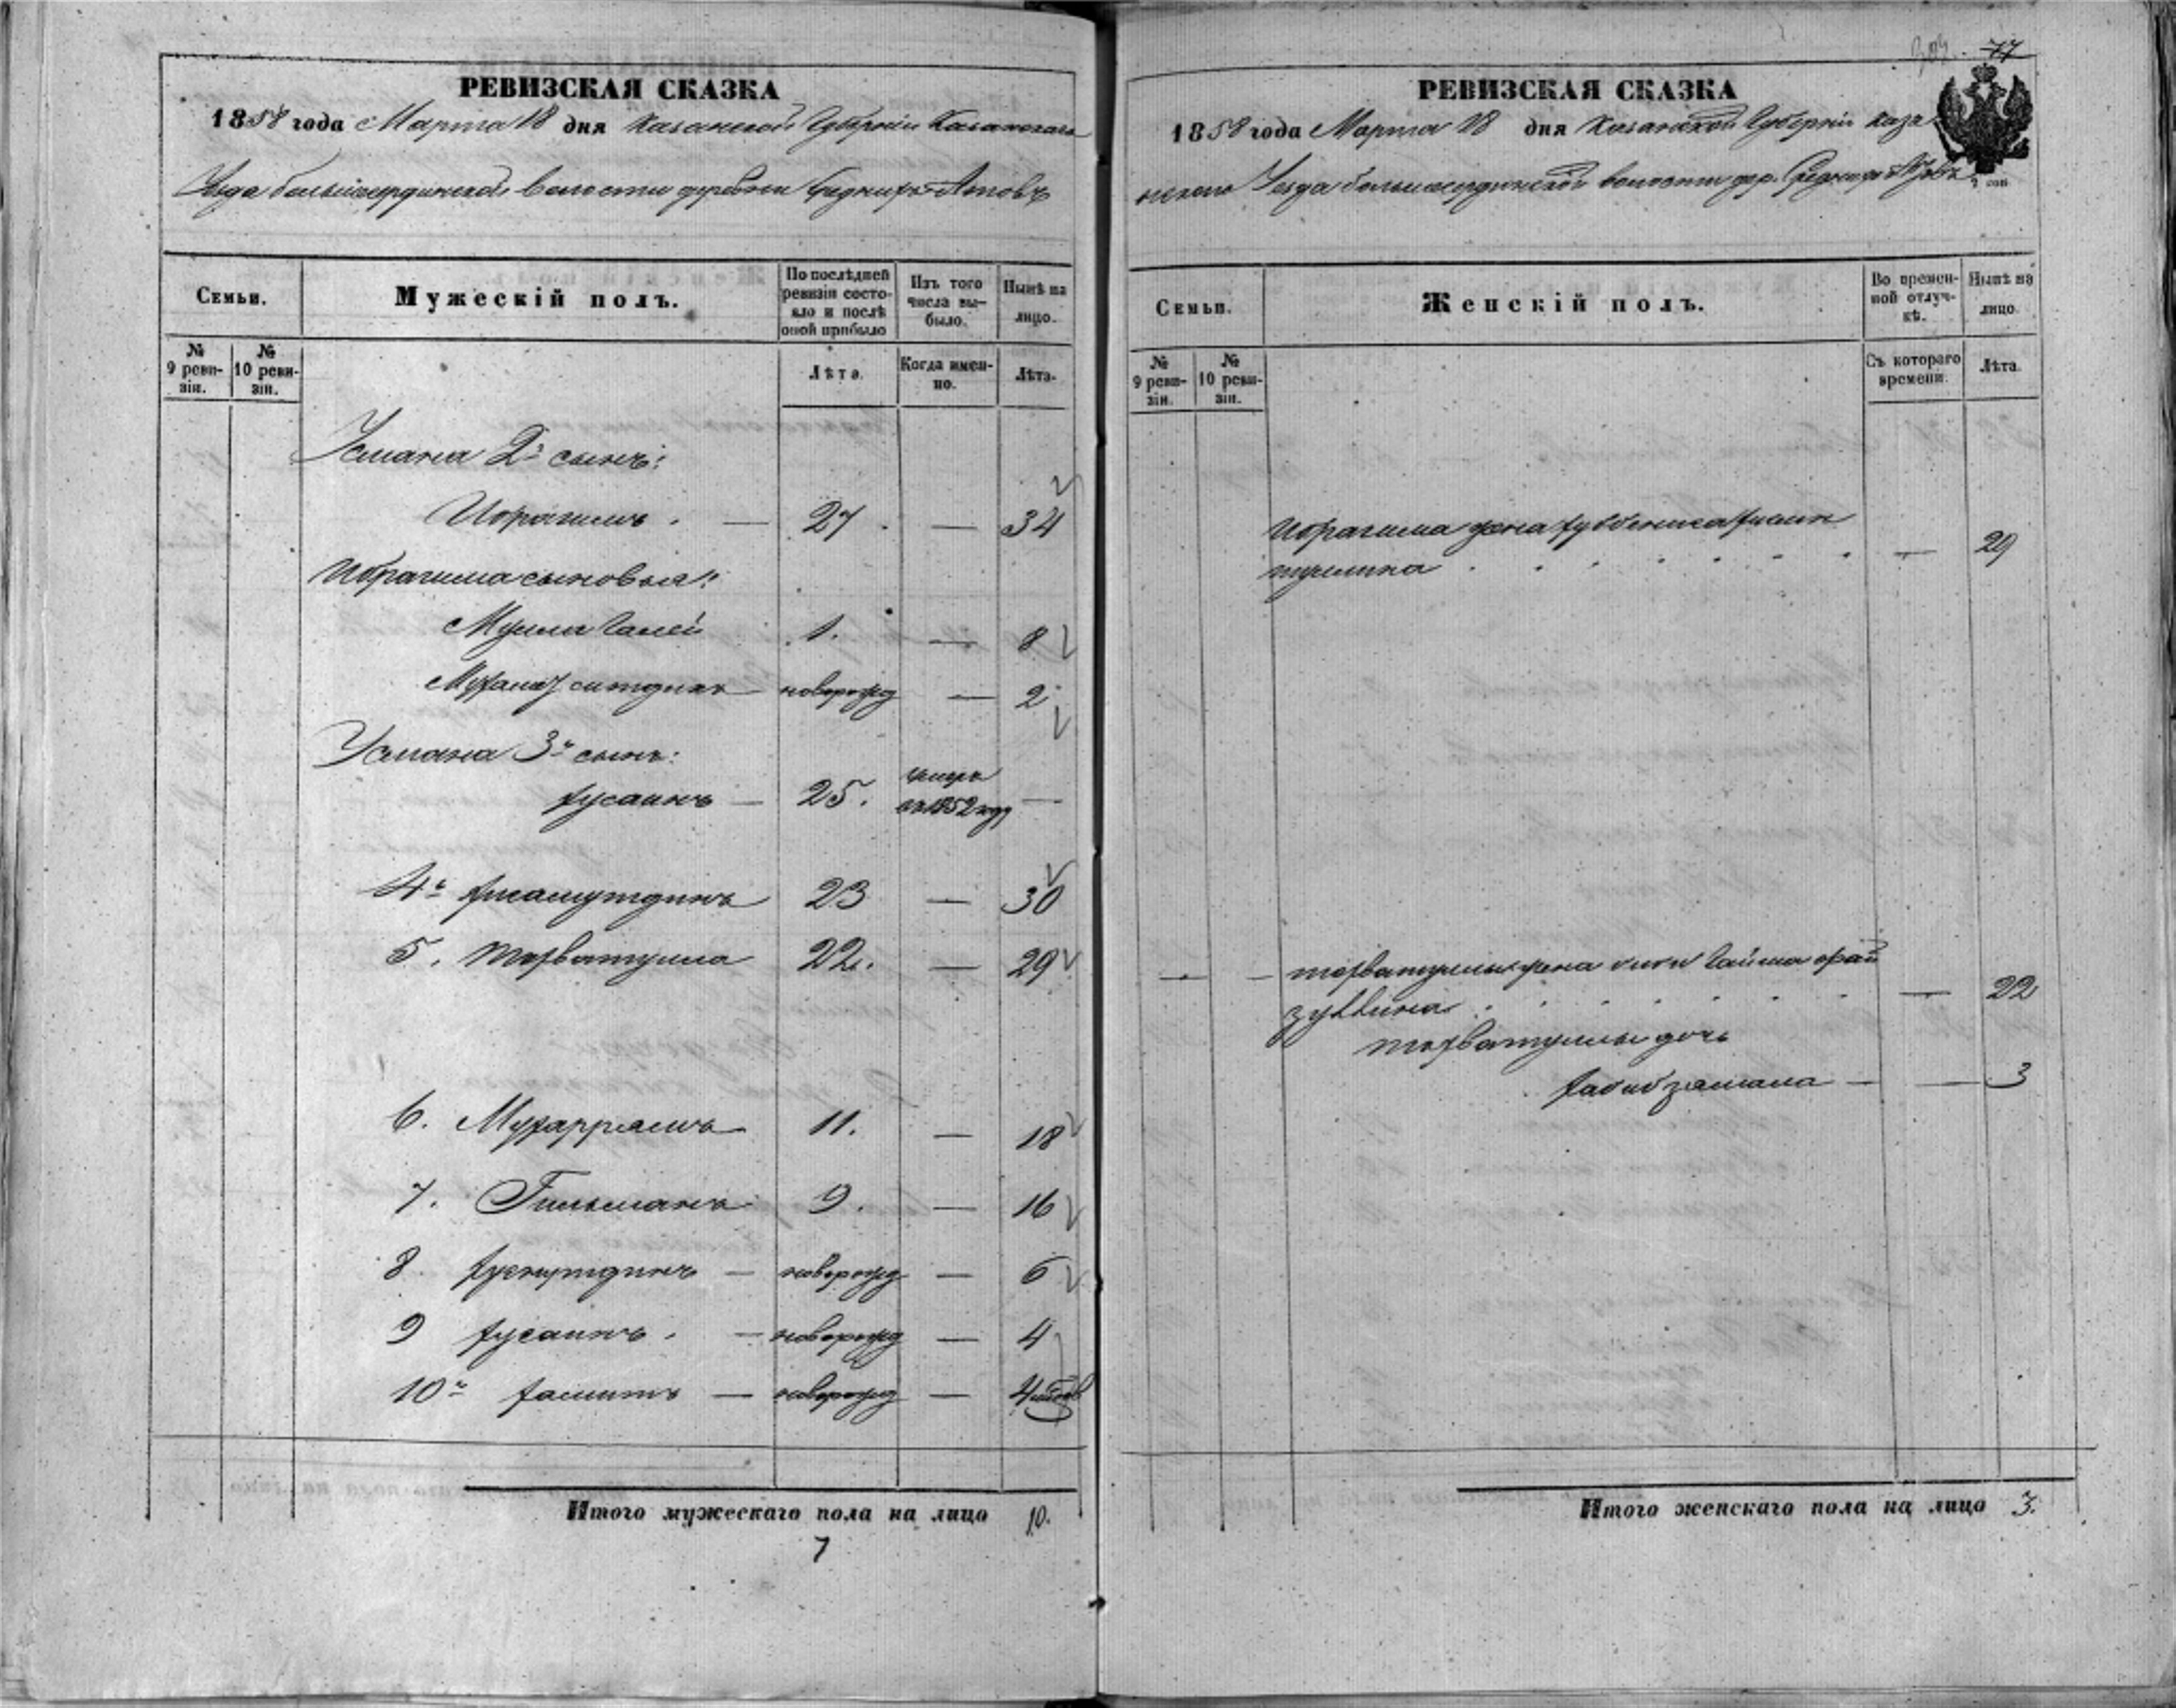 РЕВИЗСКАЯ СКАЗКА
1858 года Марта 18 дня Казанской Губерніи Казанскаго
Уезда большесердинской волости деревни Среднихъ Атовъ
Семьи.
Мужескій полъ.
По послѣдней ревизіи состояло и послѣ оной прибыло
Изъ того числа выбыло.
Нынѣ на лицо.
№ 9 ревизіи.
№ 10 ревизіи.
Лѣта.
Когда именно.
Лѣта.
Усмана 2й сынъ:
Ибрагимъ. — 27. — 34
Ибрагима сыновья:
Мулла Галей 1. — 8
новорожд — 2
Усмана 3й сынъ:
Хусаинъ — 25. умеръ въ 1852 году —
4й Хисамутдинъ 23 — 30
5. Тохватулла 22. — 29
6. Мухаррямъ 11. — 18
7. Гильманъ 9. — 16
8 — новорожд — 6
9 Хусаинъ. — новорожд — 4
10й Хамитъ — новорожд — 4
Итого мужескаго пола на лицо 10.
7
77
РЕВИЗСКАЯ СКАЗКА
1858 года Марта 18 дня Казанской Губерніи Каза
нскаго Уезда большесердинской волости дер. Среднихъ
Семьи.
Женскій полъ.
Во временной отлучкѣ.
Нынѣ на лицо.
№ 9 ревизіи.
№ 10 ревизіи.
Съ котораго времени.
Лѣта.
Ибрагима жена
— 29
Тохватуллы жена биби Гайша
— 22
Тохватуллы дочь
Хабибзямала — — 3
Итого женскаго пола на лицо 3.